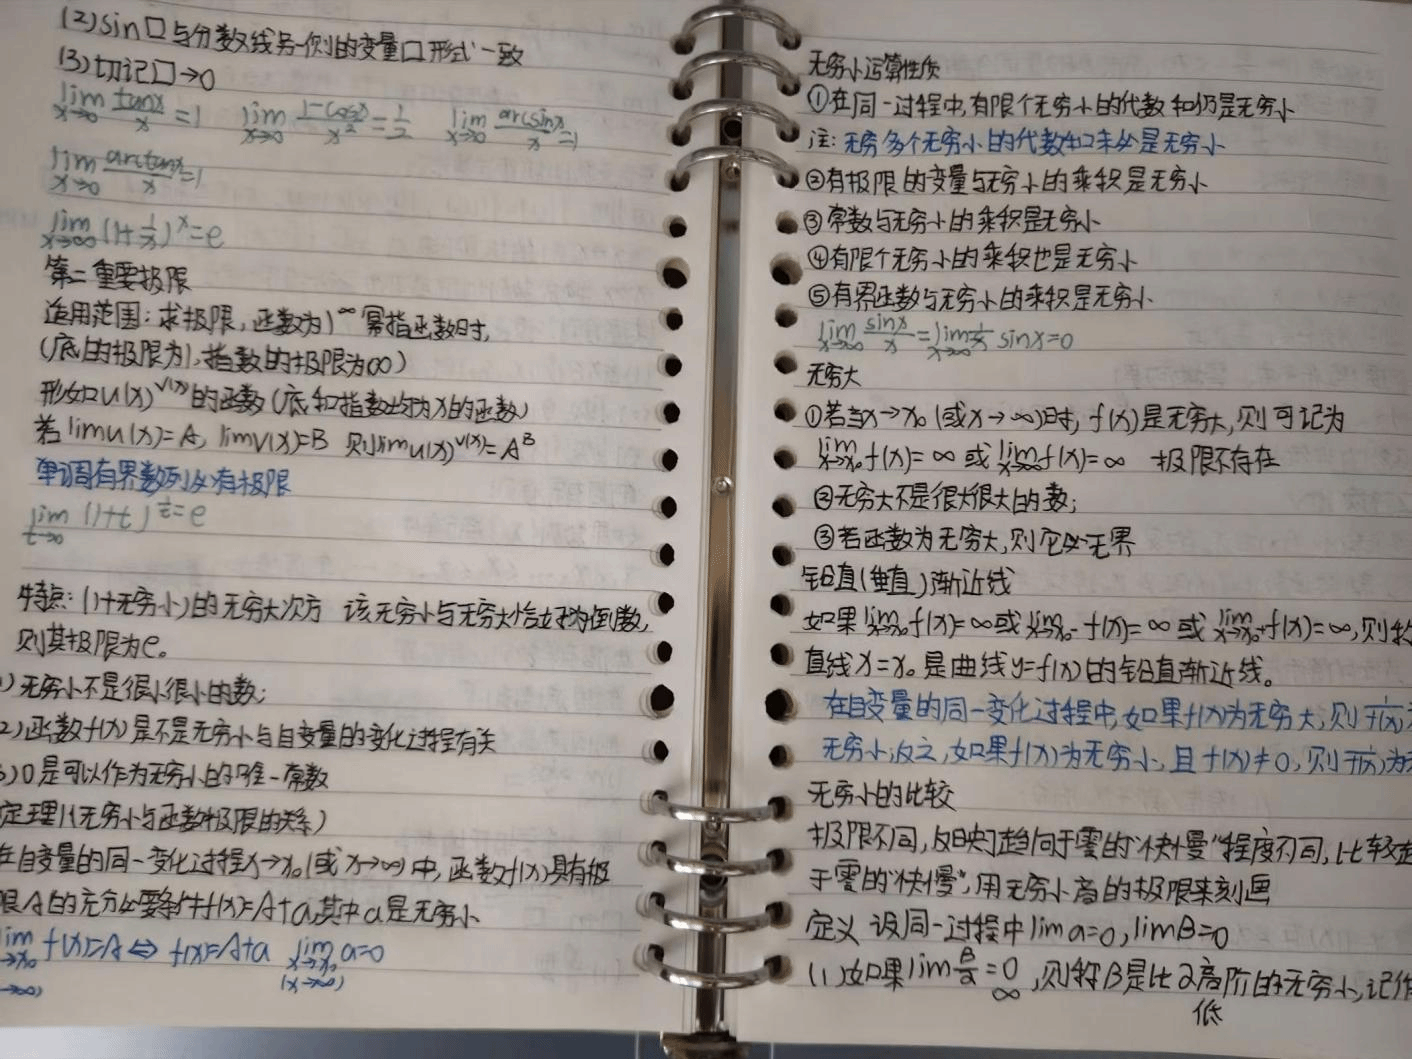 (2) sin□与分数线另一侧的变量□形式一致
(3) 切记□→0
lim x→0 tanx/x = 1  lim x→0 1-cosx/x² = 1/2  lim x→0 arcsinx/x = 1
lim x→0 arctanx/x = 1
lim x→∞ (1+1/x)^x = e
第二重要极限
适用范围：求极限，函数为1^∞幂指函数时，
(底的极限为1，指数的极限为∞)
形如u(x)^v(x)的函数(底和指数均为x的函数)
若limu(x)=A, limv(x)=B 则limu(x)^v(x)=A^B
单调有界数列必有极限
lim t→0 (1+t)^1/t = e
特点：(1+无穷小)的无穷大次方 该无穷小与无穷大恰好为倒数，
则其极限为e。
)无穷小不是很小很小的数；
2)函数f(x)是不是无穷小与自变量的变化过程有关
)0是可以作为无穷小的唯一常数
定理1(无穷小与函数极限的关系)
在自变量的同一变化过程x→x₀(或x→∞)中，函数f(x)具有极
限A的充分必要条件f(x)=A+a，其中a是无穷小
lim →x₀ (→∞) f(x)=A ⇔ f(x)=A+a  lim x→x₀ (x→∞) a=0
无穷小运算性质
①在同一过程中，有限个无穷小的代数和仍是无穷小
注：无穷多个无穷小的代数和未必是无穷小
②有极限的变量与无穷小的乘积是无穷小
③常数与无穷小的乘积是无穷小
④有限个无穷小的乘积也是无穷小
⑤有界函数与无穷小的乘积是无穷小
lim x→∞ sinx/x = lim x→∞ 1/x sinx=0
无穷大
①若当x→x₀(或x→∞)时，f(x)是无穷大，则可记为
lim x→x₀ f(x)=∞ 或 lim x→∞ f(x)=∞ 极限不存在
②无穷大不是很大很大的数；
③若函数为无穷大，则它必无界
铅直(垂直)渐近线
如果lim x→x₀ f(x)=∞或lim x→x₀⁻ f(x)=∞ 或 lim x→x₀⁺ f(x)=∞，则称
直线x=x₀是曲线y=f(x)的铅直渐近线。
在自变量的同一变化过程中，如果f(x)为无穷大，则1/f(x)为
无穷小；反之，如果f(x)为无穷小，且f(x)≠0，则1/f(x)为无
无穷小的比较
极限不同，反映了趋向于零的“快慢”程度不同，比较趋
于零的“快慢”，用无穷小商的极限来刻画
定义 设同一过程中lima=0，limβ=0
(1)如果lim β/a = 0，则称β是比a高阶的无穷小，记作
∞ 低